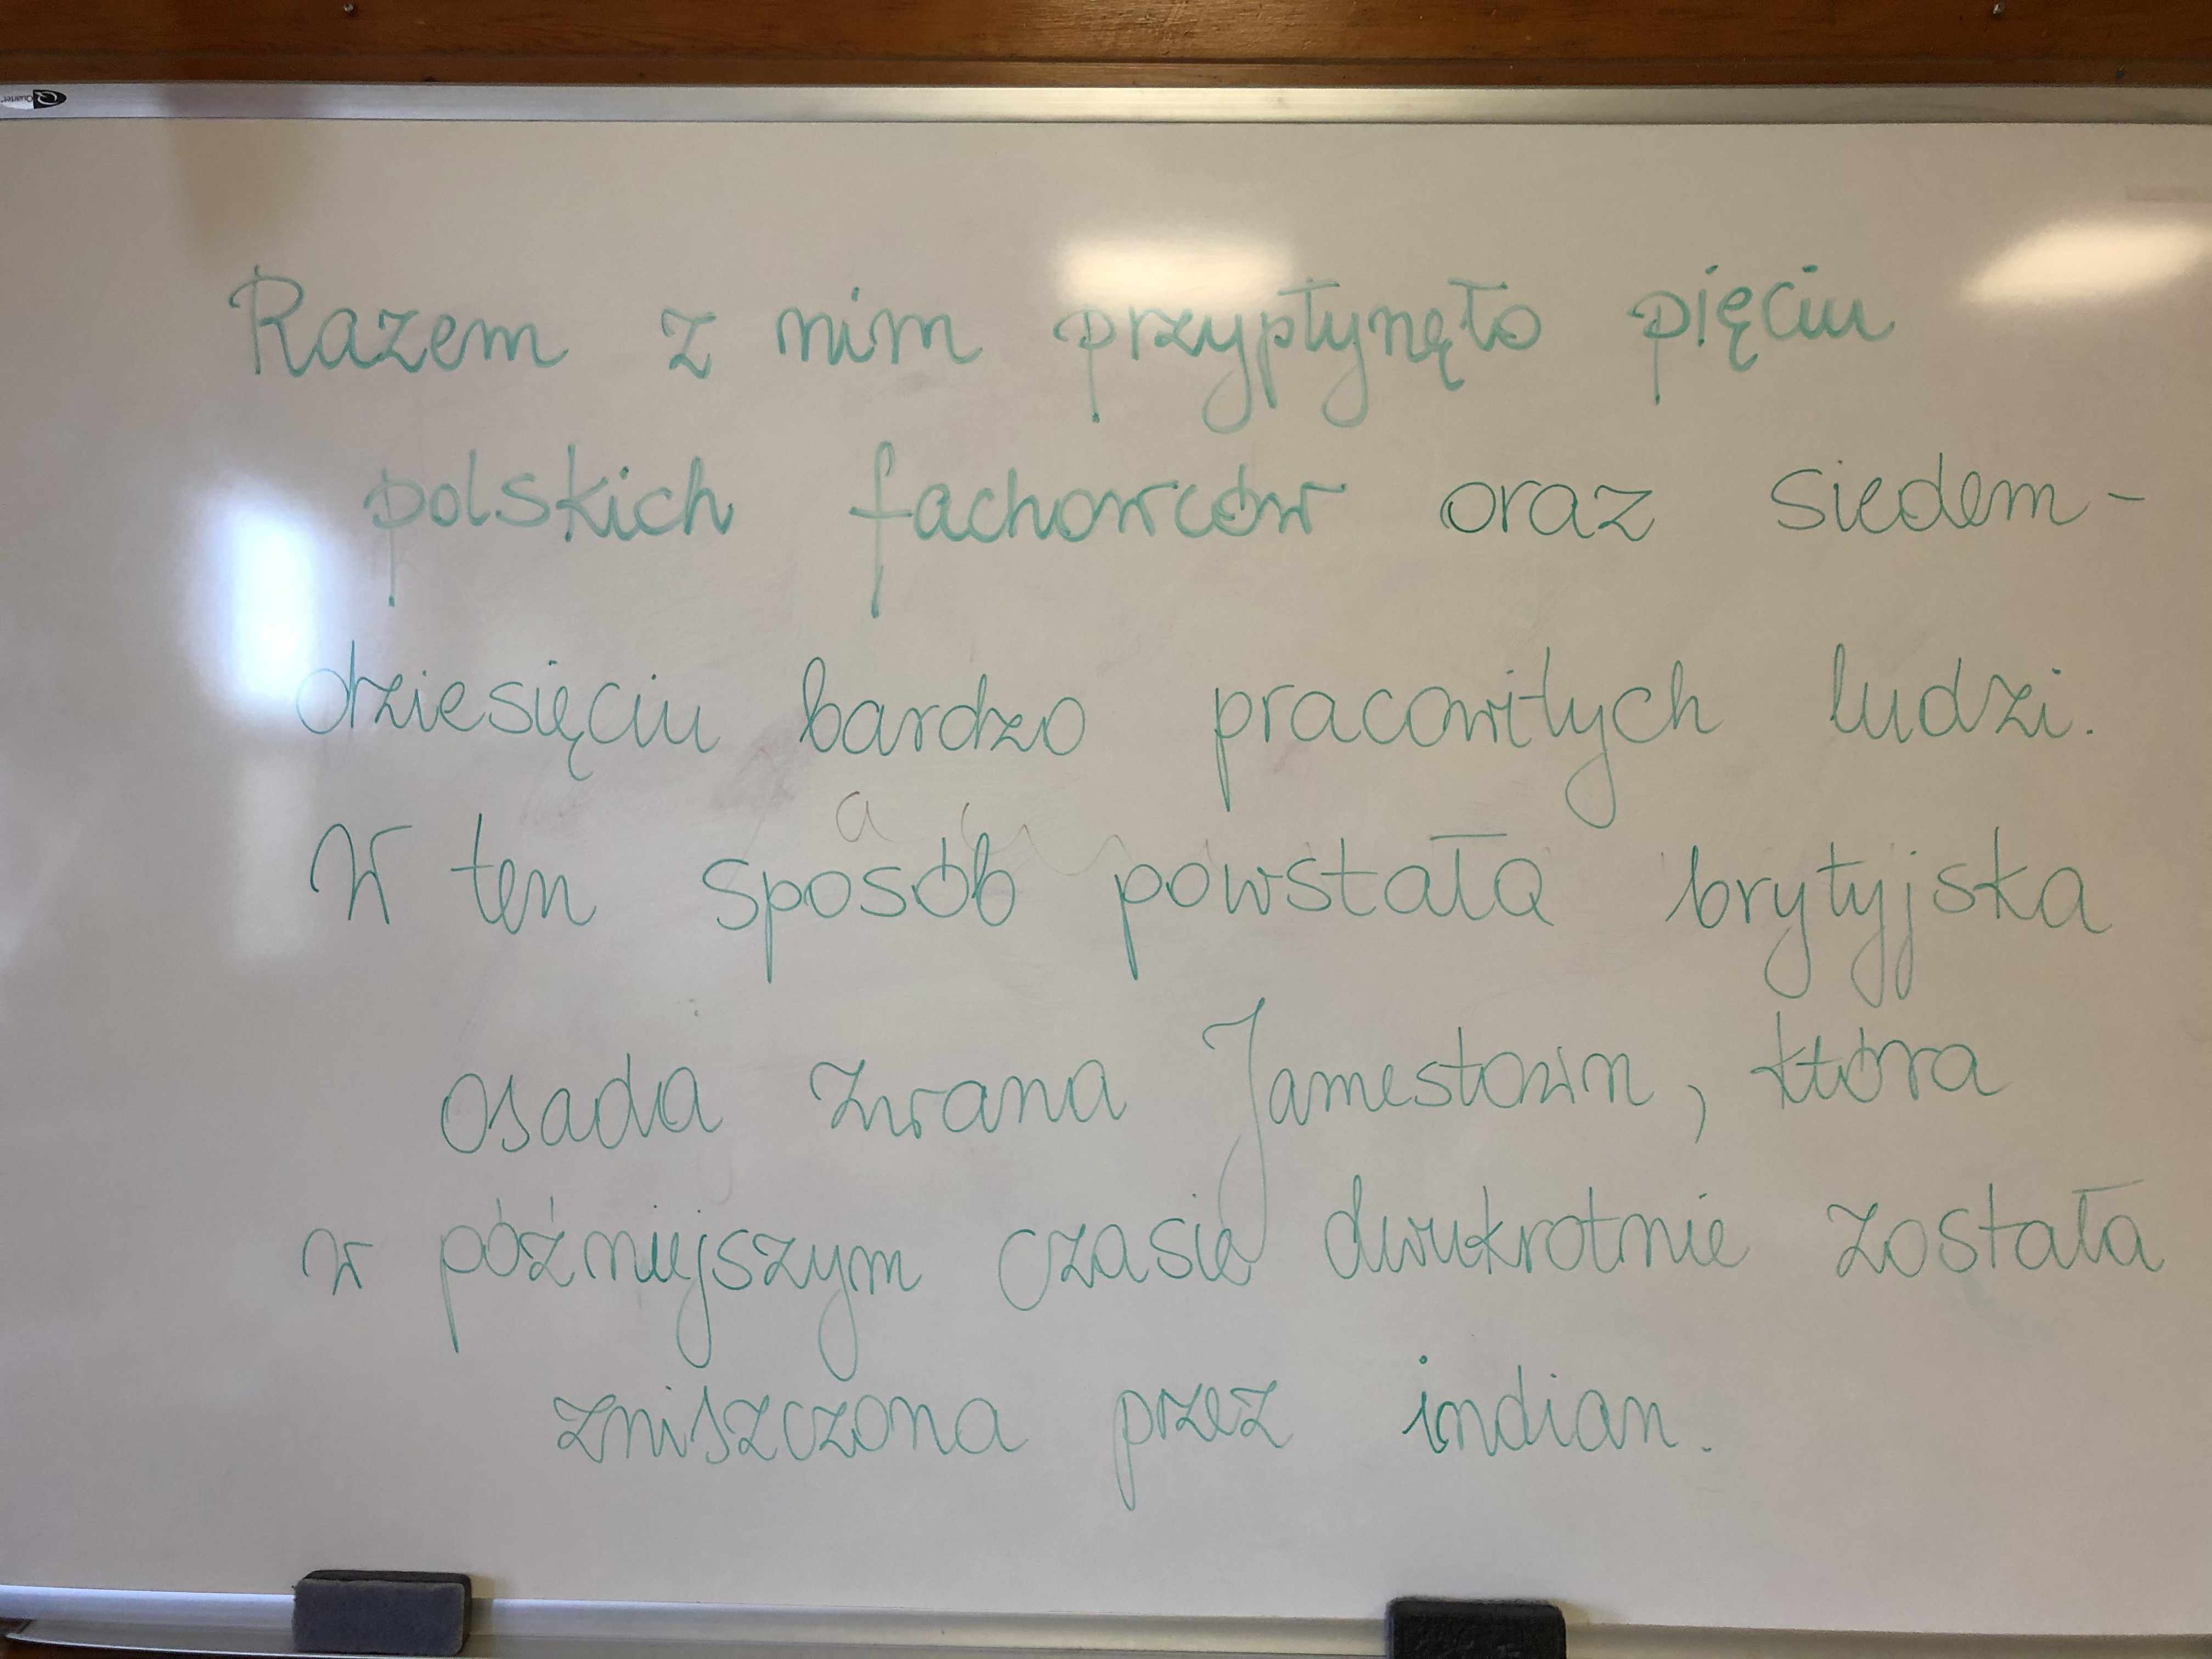 Razem z nim przypłynęło pięciu
polskich fachowców oraz siedem-
dziesięciu bardzo pracowitych ludzi.
W ten sposób powstała brytyjska
osada zwana Jamestown, która
w późniejszym czasie dwukrotnie została
zniszczona przez indian.